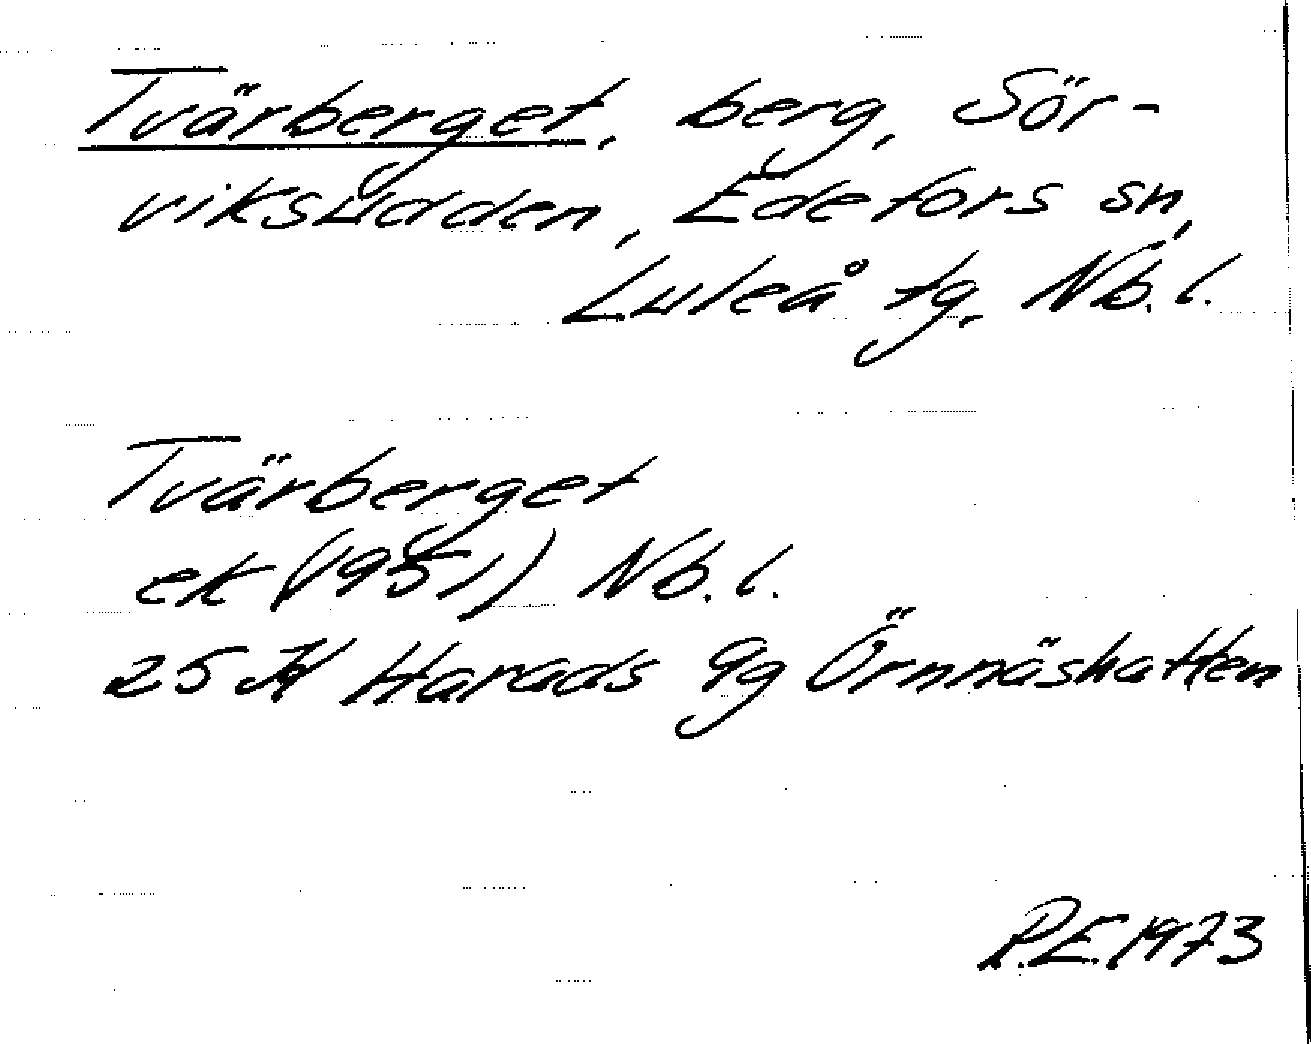 Tvärberget, berg, Sör-
viksudden, Edefors sn,
Luleå tg, Nb. l.
Tvärberget
ek (1951) Nb. l.
25 H Harads 9g Örnnäshatten
P.E. 1973